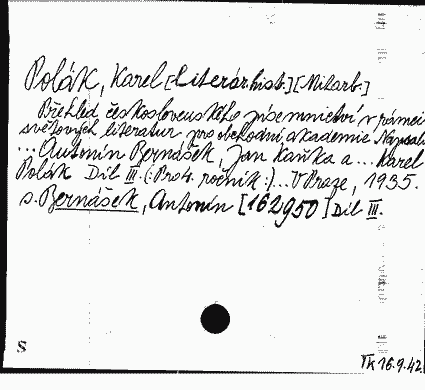 Polák, Karel [Literár.hist.] [Mitarb.]
Přehled československého písemnictví v rámci
světových literatur pro obchodní akademie Napsali
... Antonín Bernášek, Jan Kaňka a ... Karel
Polák Díl III. (: Pro 4. ročník :) ... V Praze, 1935.
s. Bernášek, Antonín [162950] Díl III.
S
Tk 16.9.42